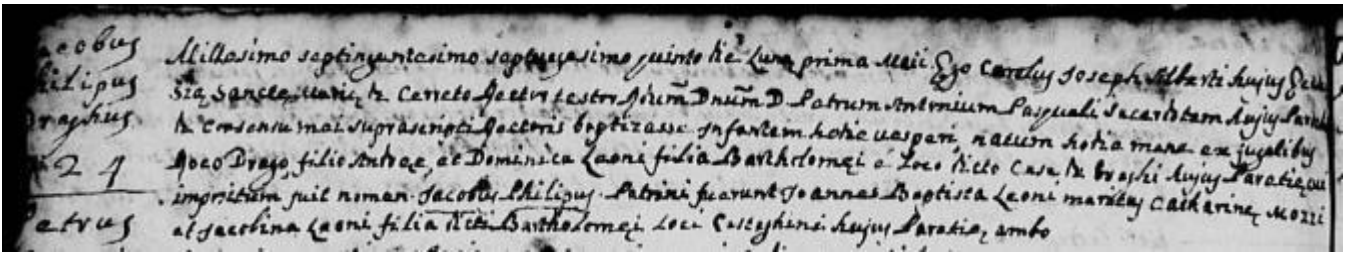 Jacobus
Philipus
Draghius
N. 24
Petrus
Millesimo septingentesimo septuagesimo quinto die Luna prima Maii Ego Carolus Joseph Alberti hujus
Sanctę Marię de Cerreto Rector testor Adm. Dnum D. Petrum Antonium Pasquali Sacerdotem hujus Paratię
de consensu mei suprascripti Rectoris baptizasse Infantem hodie vesperi, natum hodie mane ex jugalibus
Drago, filio Andreę, et Dominica Leoni filia Bartholomęi e Loco dicto Casa de draghi hujus Paratię, cui
impositum fuit nomen Jacobus Philipus. Patrini fuerunt Joannes Baptista Leoni maritus Catharinę Mozzi
et Jacobina Leoni filia dicti Bartholomęi Loci Casteghini hujus Paratię, ambo